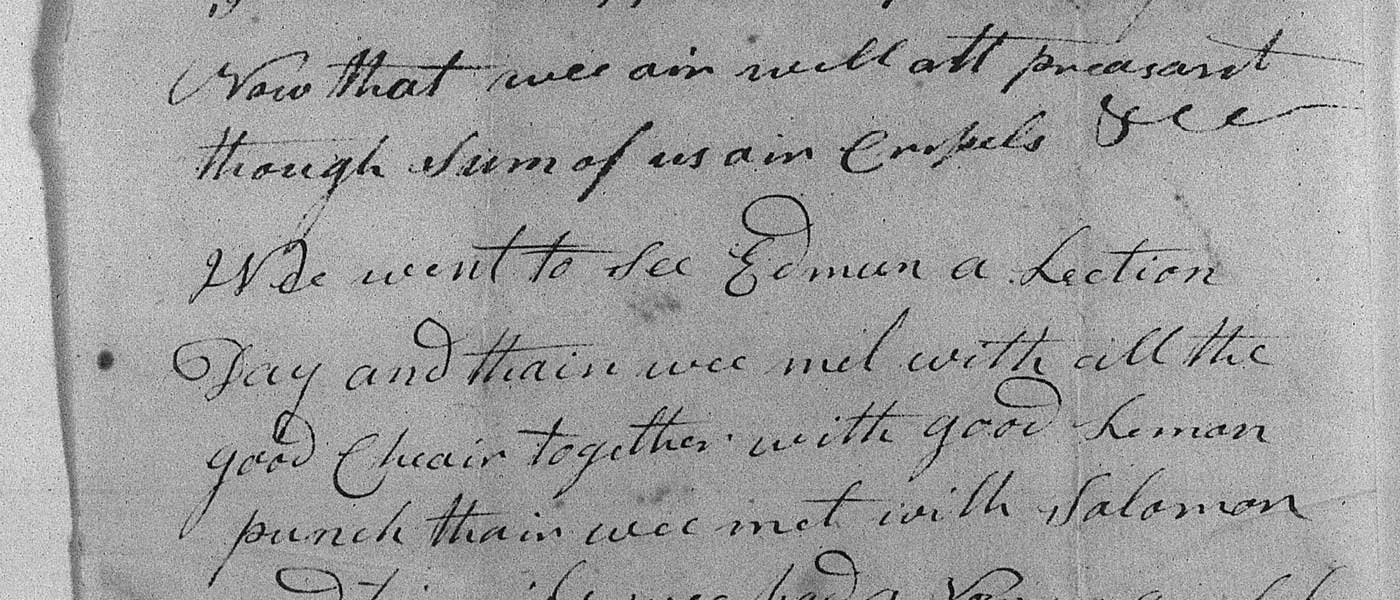 Now that wee air well att preasant
though Sum of us air Cripels &cc
Wee went to See Edmun a Lection
Day and thair wee met with all the
good Cheair together with good Leman
punch thair wee met with Salomon
wee had a